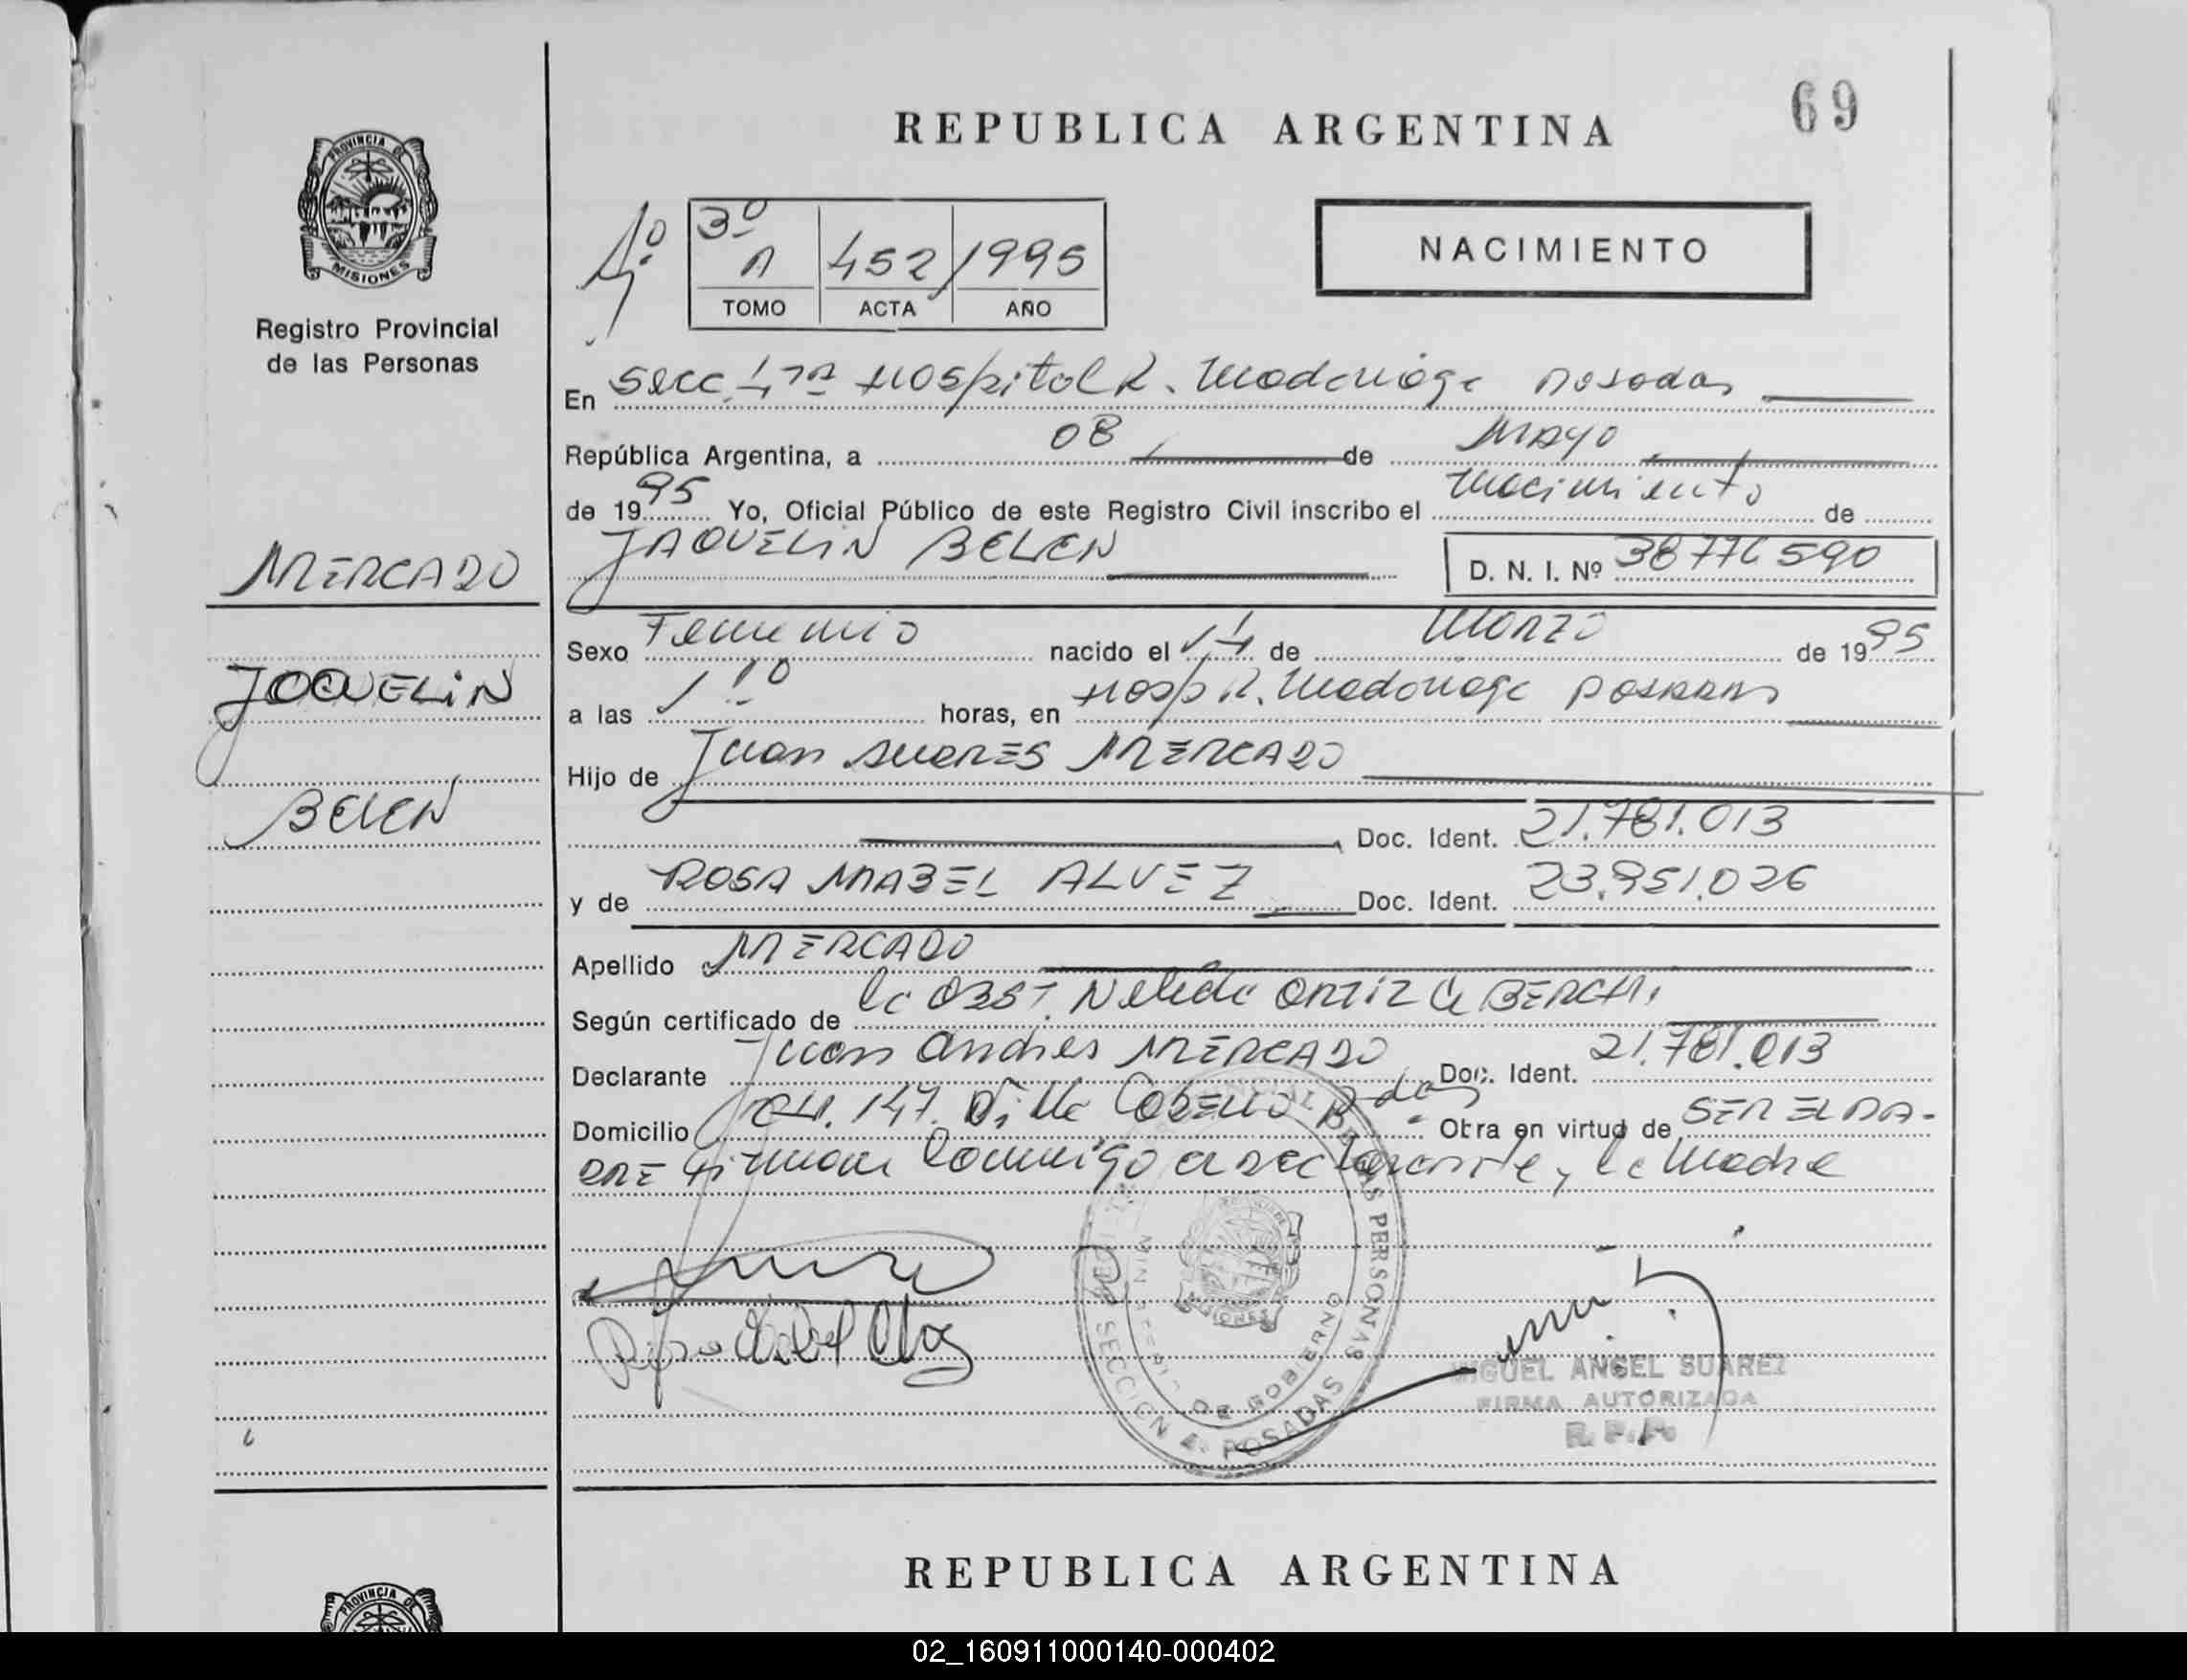 69
REPUBLICA ARGENTINA
PROVINCIA DE
MISIONES
Registro Provincial
de las Personas
3º
A 452 1995
TOMO ACTA AÑO
NACIMIENTO
En Secc. 4ta Hospital R. Madariaga Posadas
República Argentina, a 08 de Mayo
de 1995 Yo, Oficial Público de este Registro Civil inscribo el Nacimiento de
JAQUELIN BELEN
D. N. I. Nº 38776590
MERCADO
JAQUELIN
BELEN
Sexo Femenino nacido el 14 de Marzo de 1995
a las 1 10 horas, en Hosp R. Madariaga Posadas
Hijo de Juan ANDRES MERCADO
Doc. Ident. 21.781.013
y de ROSA MABEL ALVEZ Doc. Ident. 23.951.026
Apellido MERCADO
Según certificado de la OBST. Nelida ORTIZ de
Declarante Juan Andres MERCADO Doc. Ident. 21.781.013
Domicilio CH. 147. Villa Cabello Pdas Obra en virtud de SER EL PA-
DRE Firman Conmigo el declarante, y la Madre
DE LAS PERSONAS
MINISTERIO DE GOBIERNO
SECCION 4ª POSADAS
MISIONES
MIGUEL ANGEL SUAREZ
FIRMA AUTORIZADA
R. P. P.
REPUBLICA ARGENTINA
PROVINCIA DE
02_160911000140-000402